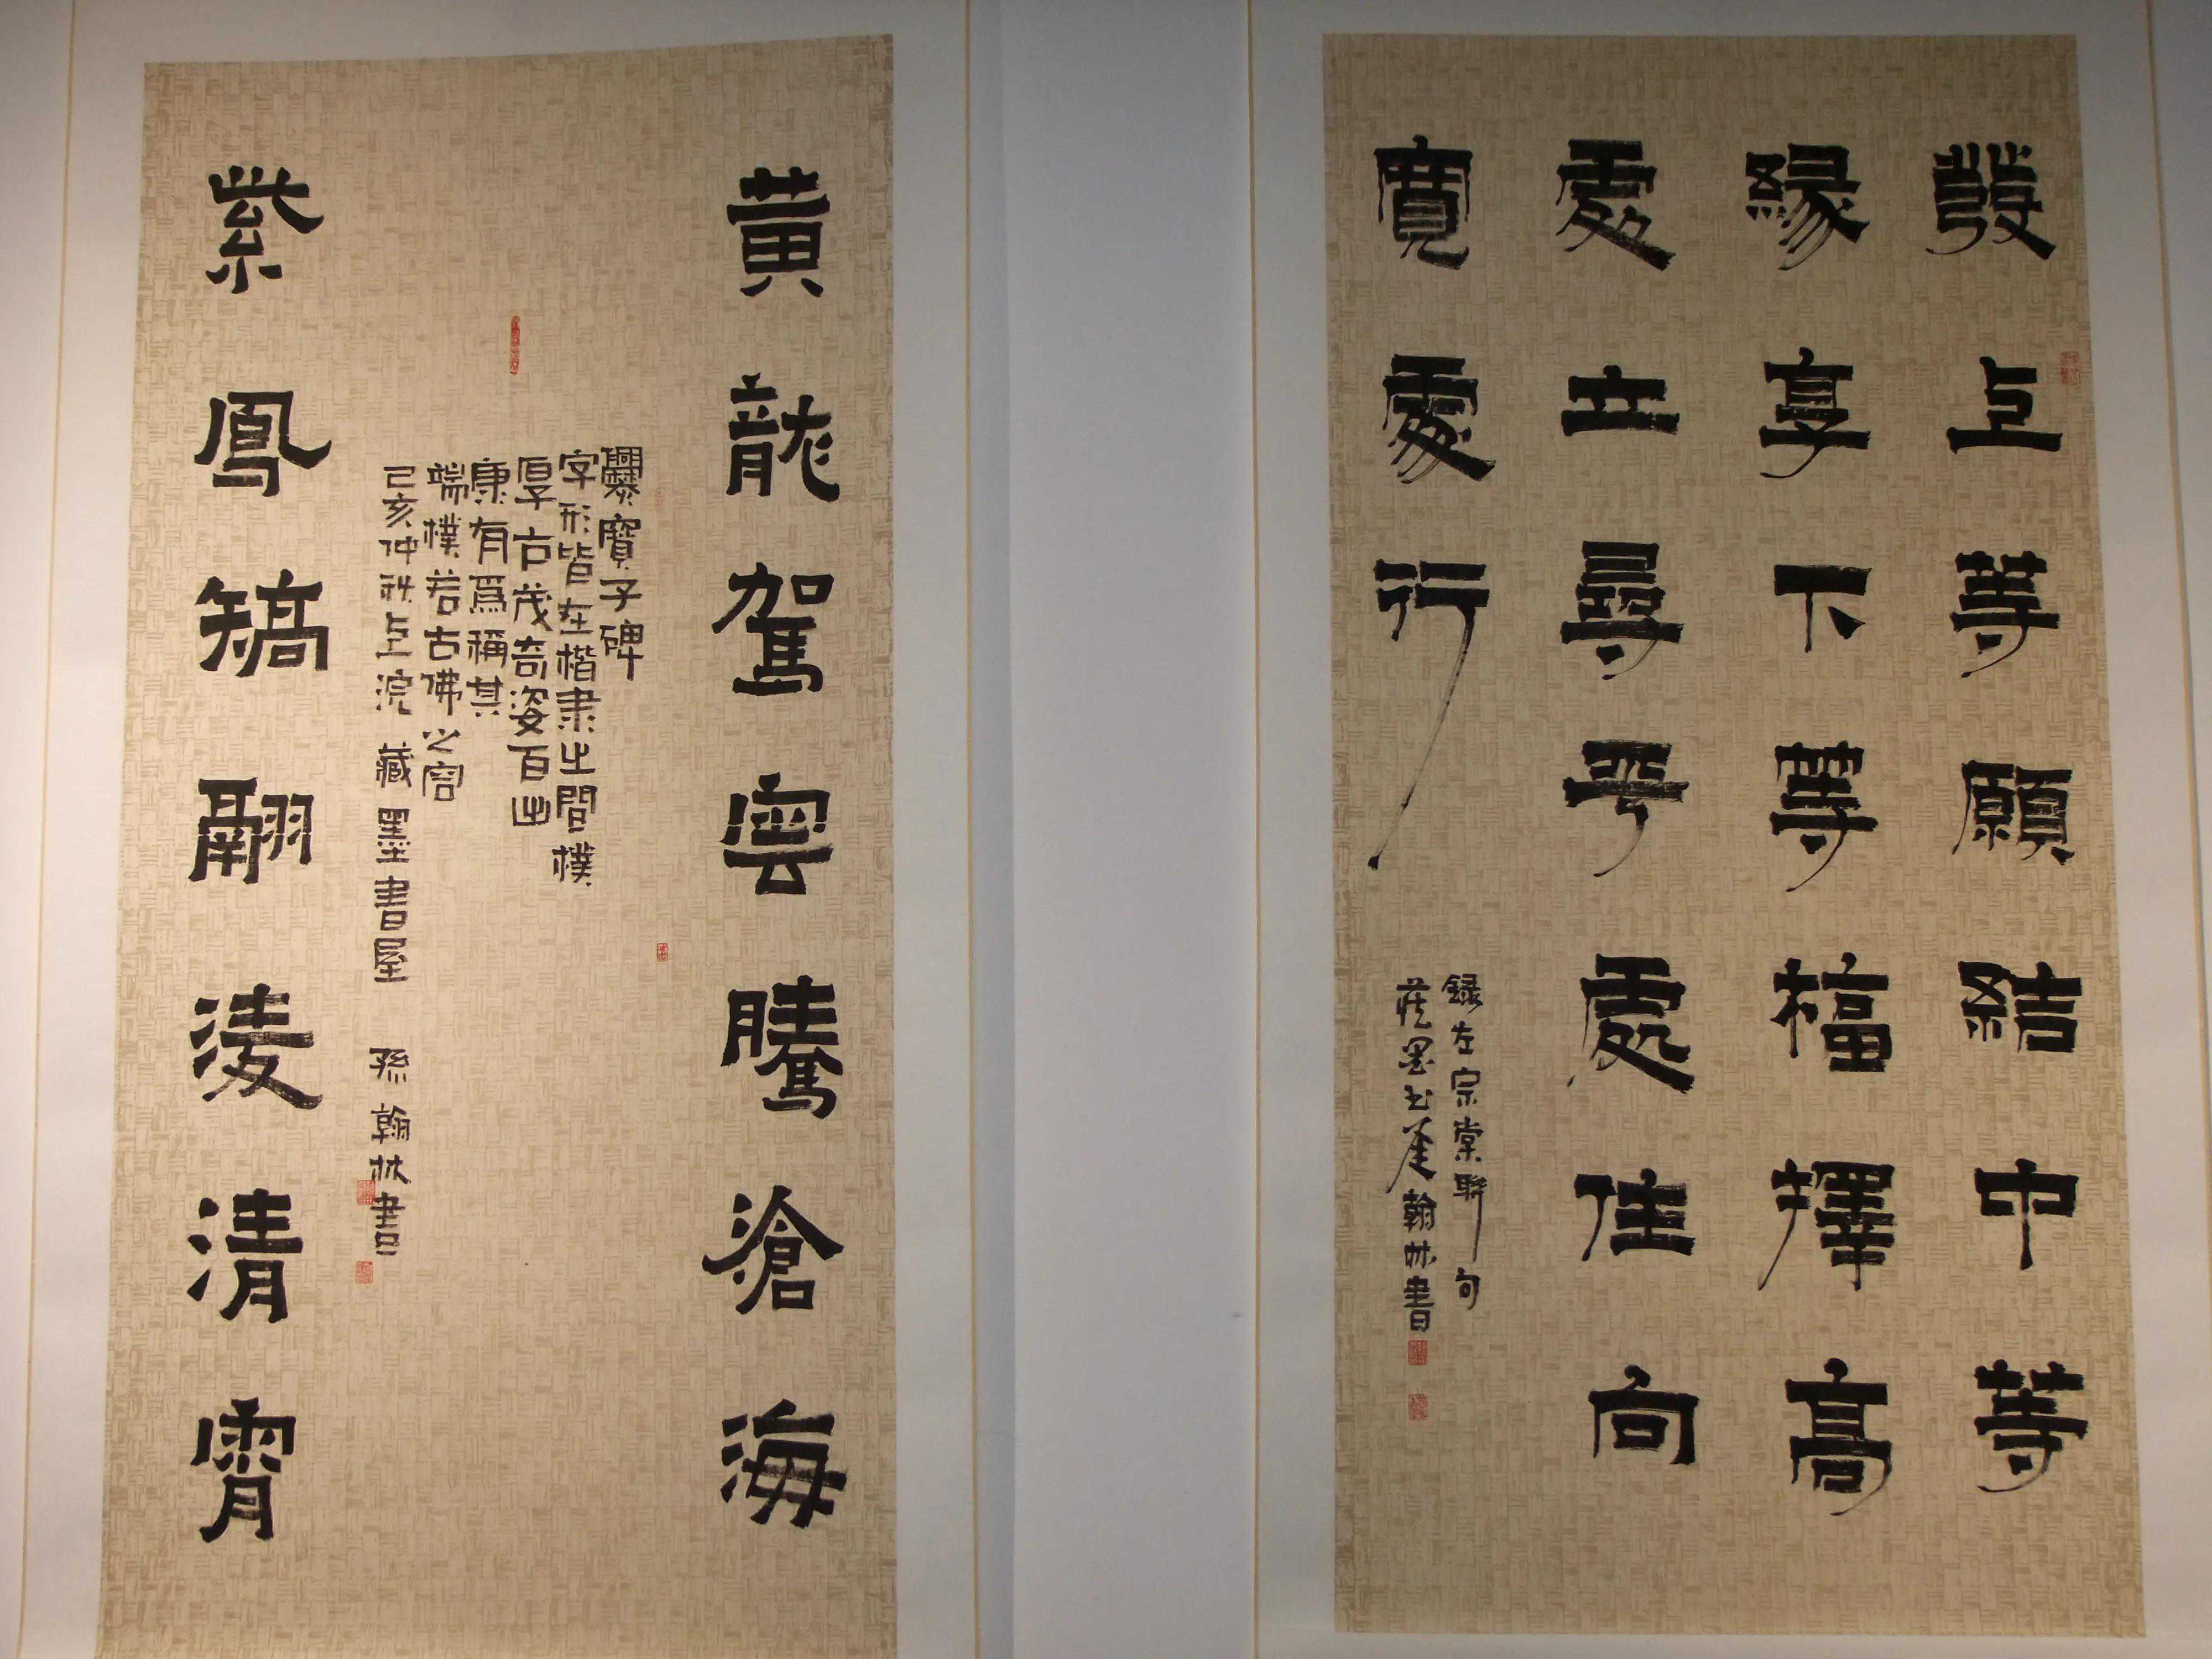 發上等願結中等
緣享下等福擇高
處立尋平處住向
寬處行
録左宗棠聯句
藏墨書屋翰林書
黃龍駕雲騰滄海
爨寶子碑
字形皆在楷隶之間樸
厚古茂奇姿百出
康有為稱其
端樸若古佛之容
己亥仲秋上浣 藏墨書屋 孫翰林書
紫鳳矯翮淩清霄